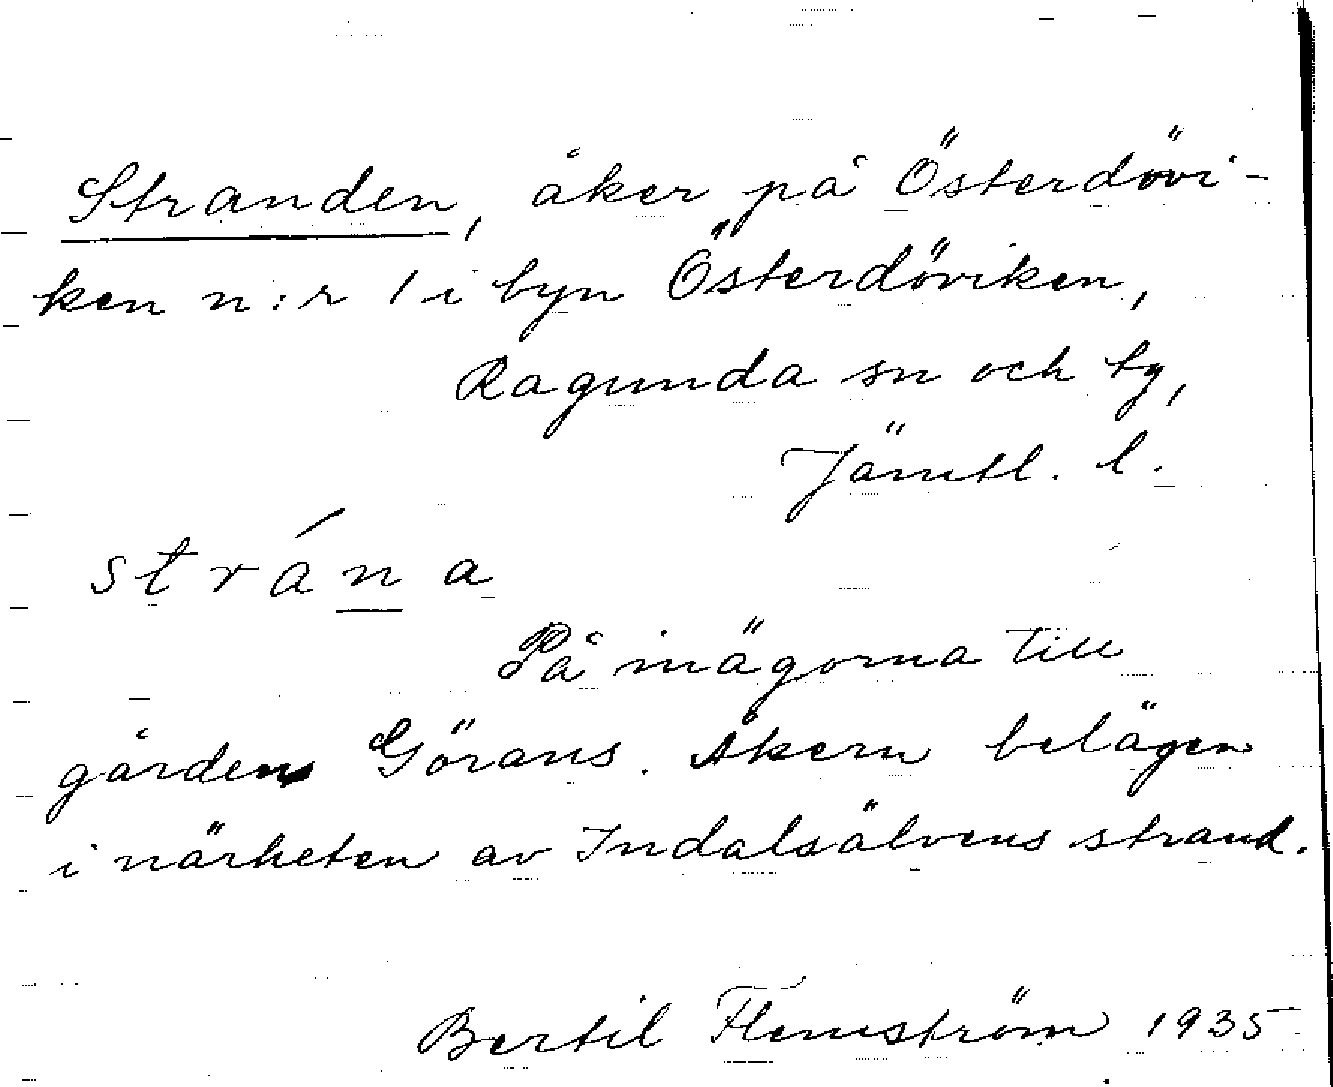 Stranden, åker på Österdövi-
ken n:r 1 i byn Österdöviken,
Ragunda sn och tg,
Jämtl. l.
strána
På inägorna till
gården Görans. Åkern belägen
i närheten av Indalsälvens strand.
Bertil Flemström 1935